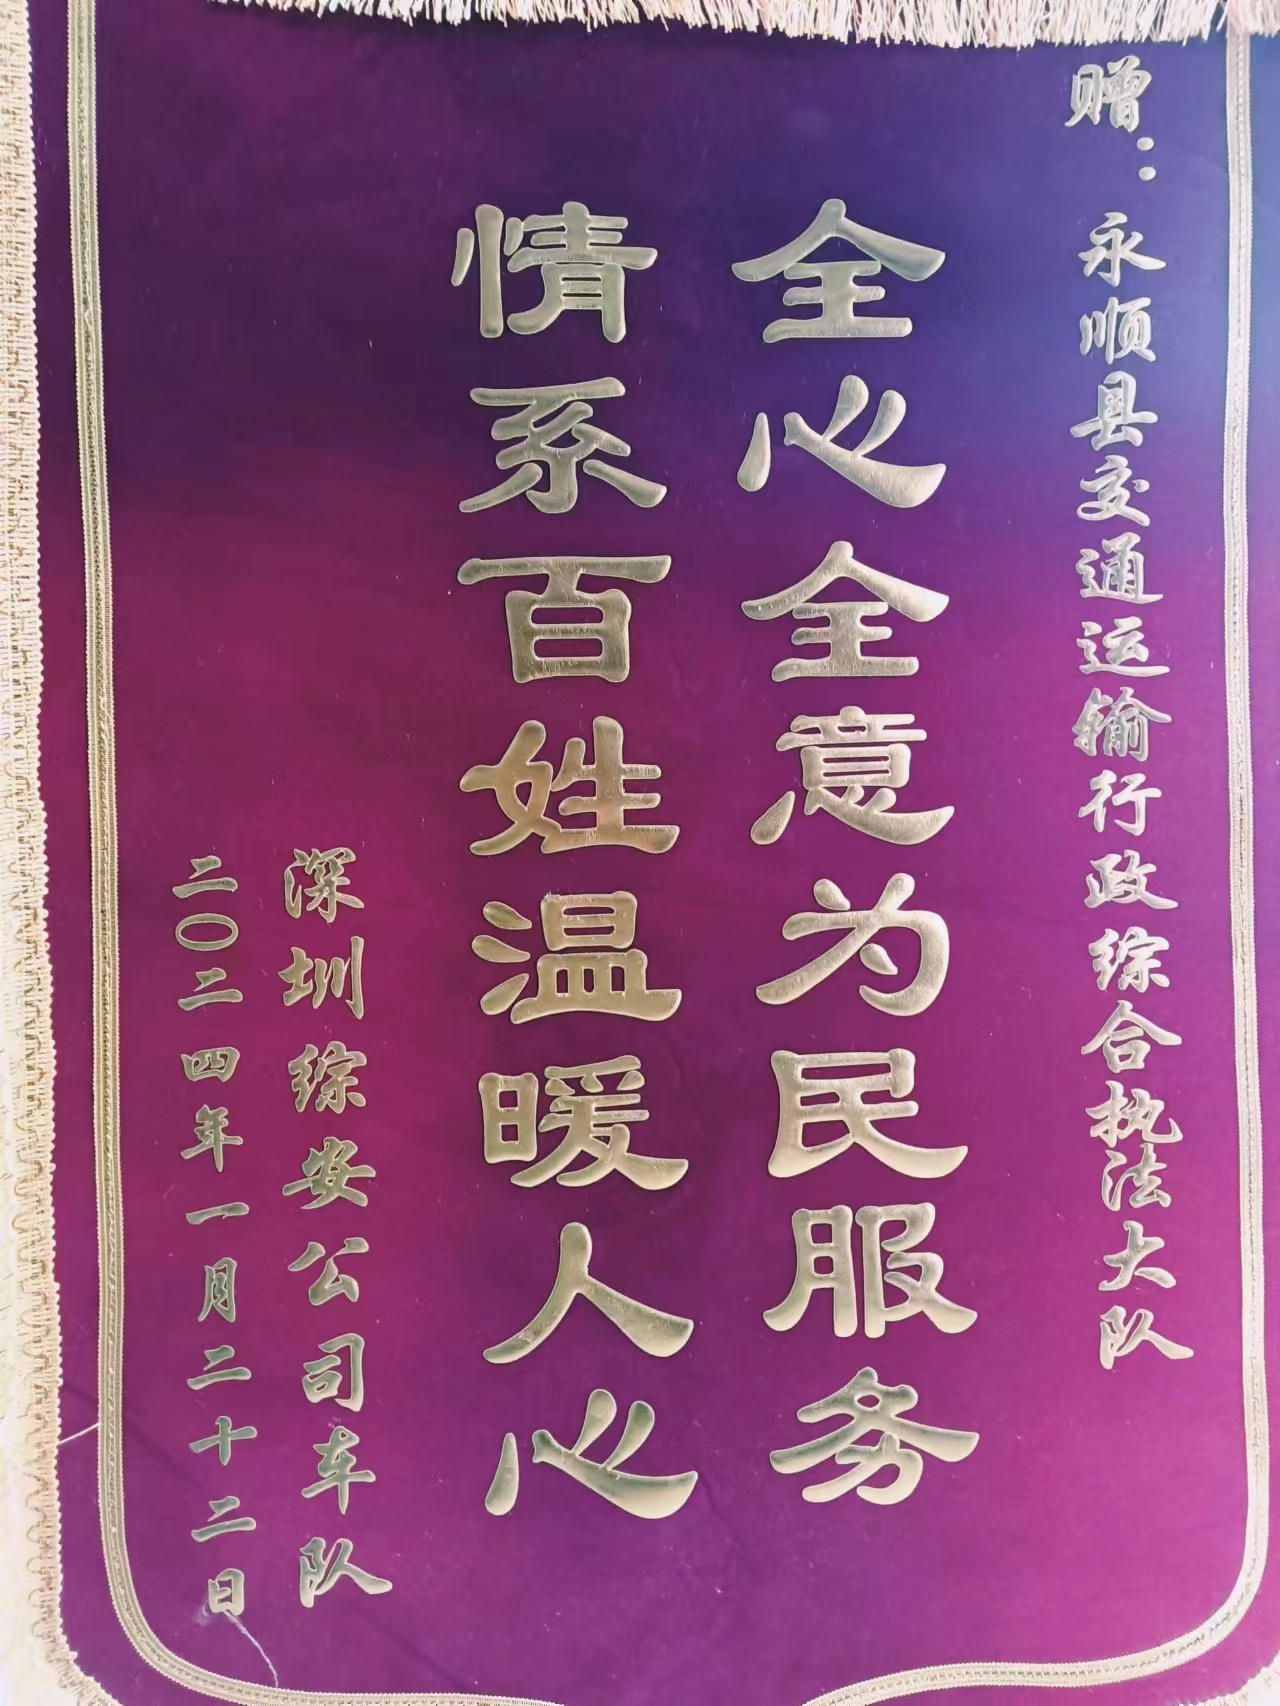 赠：永顺县交通运输行政综合执法大队
全心全意为民服务
情系百姓温暖人心
深圳综安公司车队
二〇二四年一月二十二日